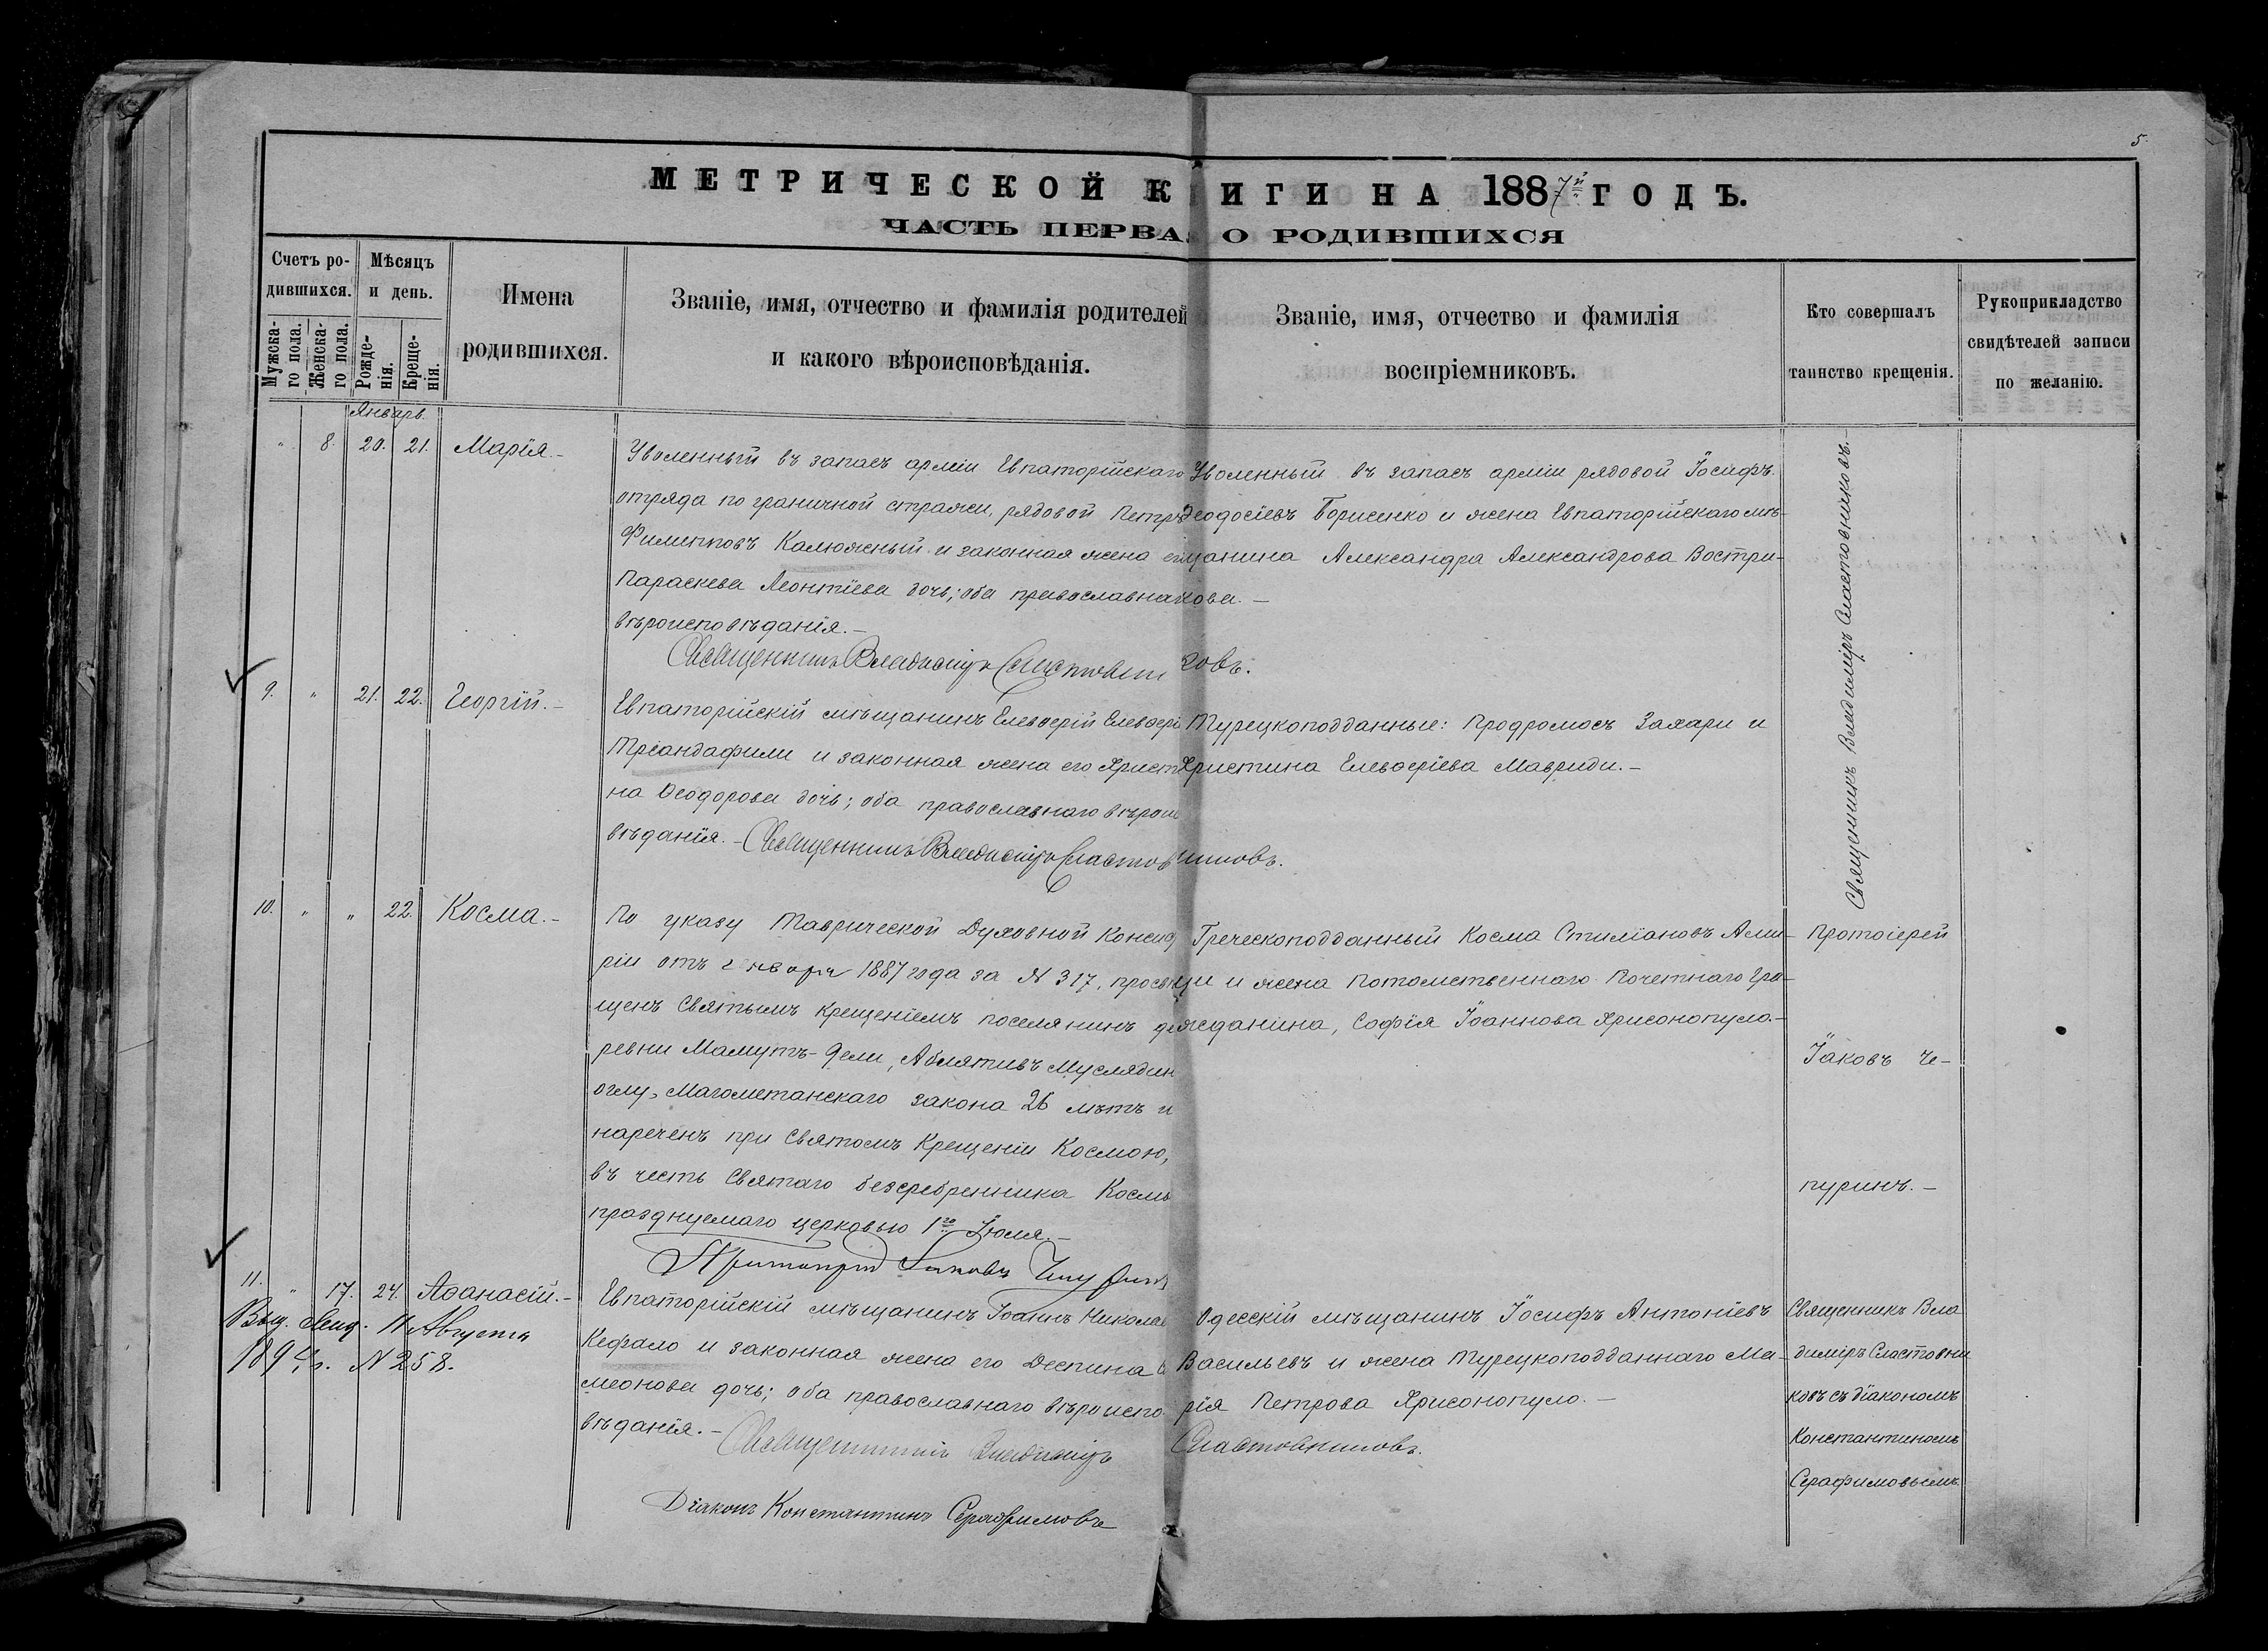 5.
МЕТРИЧЕСКОЙ КНИГИ НА 1887й ГОДЪ.
ЧАСТЬ ПЕРВАЯ О РОДИВШИХСЯ
Счетъ ро-
дившихся.
Мужска-
го пола.
Женска-
го пола.
Мѣсяцъ
и день.
Рожде-
нія.
Креще-
нія.
Имена
родившихся.
Званіе, имя, отчество и фамилія родителей
и какого вѣроисповѣданія.
Званіе, имя, отчество и фамилія
воспріемниковъ.
Кто совершалъ
таинство крещенія.
Рукоприкладство
свидѣтелей записи
по желанію.
Январь.
" 8. 20. 21. Марія.-
Уволенный въ запасъ арміи Евпаторійскаго
отряда пограничной стражи, рядовой Петръ
Филипповъ Калюжный и законная жена его
Параскева Леонтіева дочь; оба православнаго
вѣроисповѣданія.-
Уволенный въ запасъ арміи рядовой Іосифъ
Ѳеодосіевъ Борисенко и жена Евпаторійскаго мѣ-
щанина Александра Александрова Востри-
кова.-
Священникъ Владиміръ Сластовниковъ.
Священникъ Владиміръ Сластовниковъ.-
9. " 21. 22. Георгій.-
Евпаторійскій мѣщанинъ Елевѳерій Елевѳеріевъ
Тріандафили и законная жена его Христи-
на Ѳеодорова дочь; оба православнаго вѣроиспо-
вѣданія.- Священникъ Владиміръ Сластовниковъ.
Турецкоподданные: Продромосъ Захари и
Христина Елевѳеріева Мавриди.-
10. " " 22. Косма.-
По указу Таврической Духовной Консисто-
ріи отъ января 1887 года за № 317, просвѣ-
щенъ Святымъ Крещеніемъ поселянинъ де-
ревни Мамутъ-Дели, Аблятивъ Муслядин
оглу, Магометанскаго закона 26 лѣтъ и
нареченъ при Святомъ Крещеніи Космою,
въ честь Святаго безсребренника Космы
празднуемаго церковью 1го Іюля.-
Протоіерей Іаковъ Чепуринъ
Греческоподданный Косма Стиліановъ Али-
ци и жена Потомственнаго Почетнаго Гра-
жданина, Софія Іоаннова Хрисонопуло.-
Протоіерей
Іаковъ Че-
пуринъ.-
11. " 17. 24. Аѳанасій.-
Выд. Свид. 11 Августа
1894 г. № 258.
Евпаторійскій мѣщанинъ Іоаннъ Николаевъ
Кефало и законная жена его Деспина Си-
меонова дочь; оба православнаго вѣроиспо-
вѣданія.-
Одесскій мѣщанинъ Іосифъ Антоніевъ
Васильевъ и жена Турецкоподданнаго Ма-
рія Петрова Хрисонопуло.-
Священникъ Владиміръ Сластовниковъ.
Діаконъ Константинъ Серафимовъ
Священникъ Вла
диміръ Сластовни
ковъ съ діакономъ
Константиномъ
Серафимовымъ